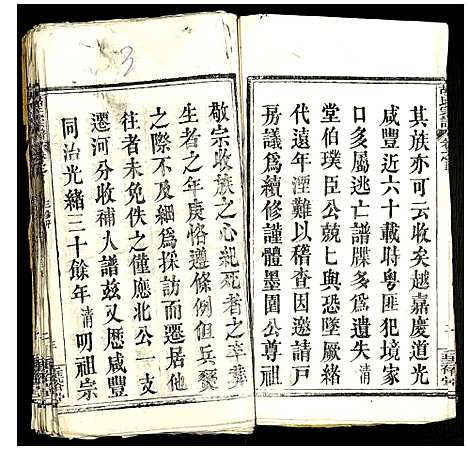 其族亦可云收矣越嘉慶道光
咸豐近六十載時粵匪犯境家
口多屬逃亡譜牒多爲遺失清
堂伯璞臣公兢匕與恐墜厥緒
代遠年湮難以稽查因邀請户
房議爲續修謹體墨園公尊祖
敬宗收族之心紀死者之卒葬
生者之年庚恪遵條例但兵燹
之際不及細爲採訪而遷居他
往者未免佚之僅應北公一支
遷河分收補人譜茲又歷咸豐
同治光緒三十餘年清叨祖宗
3